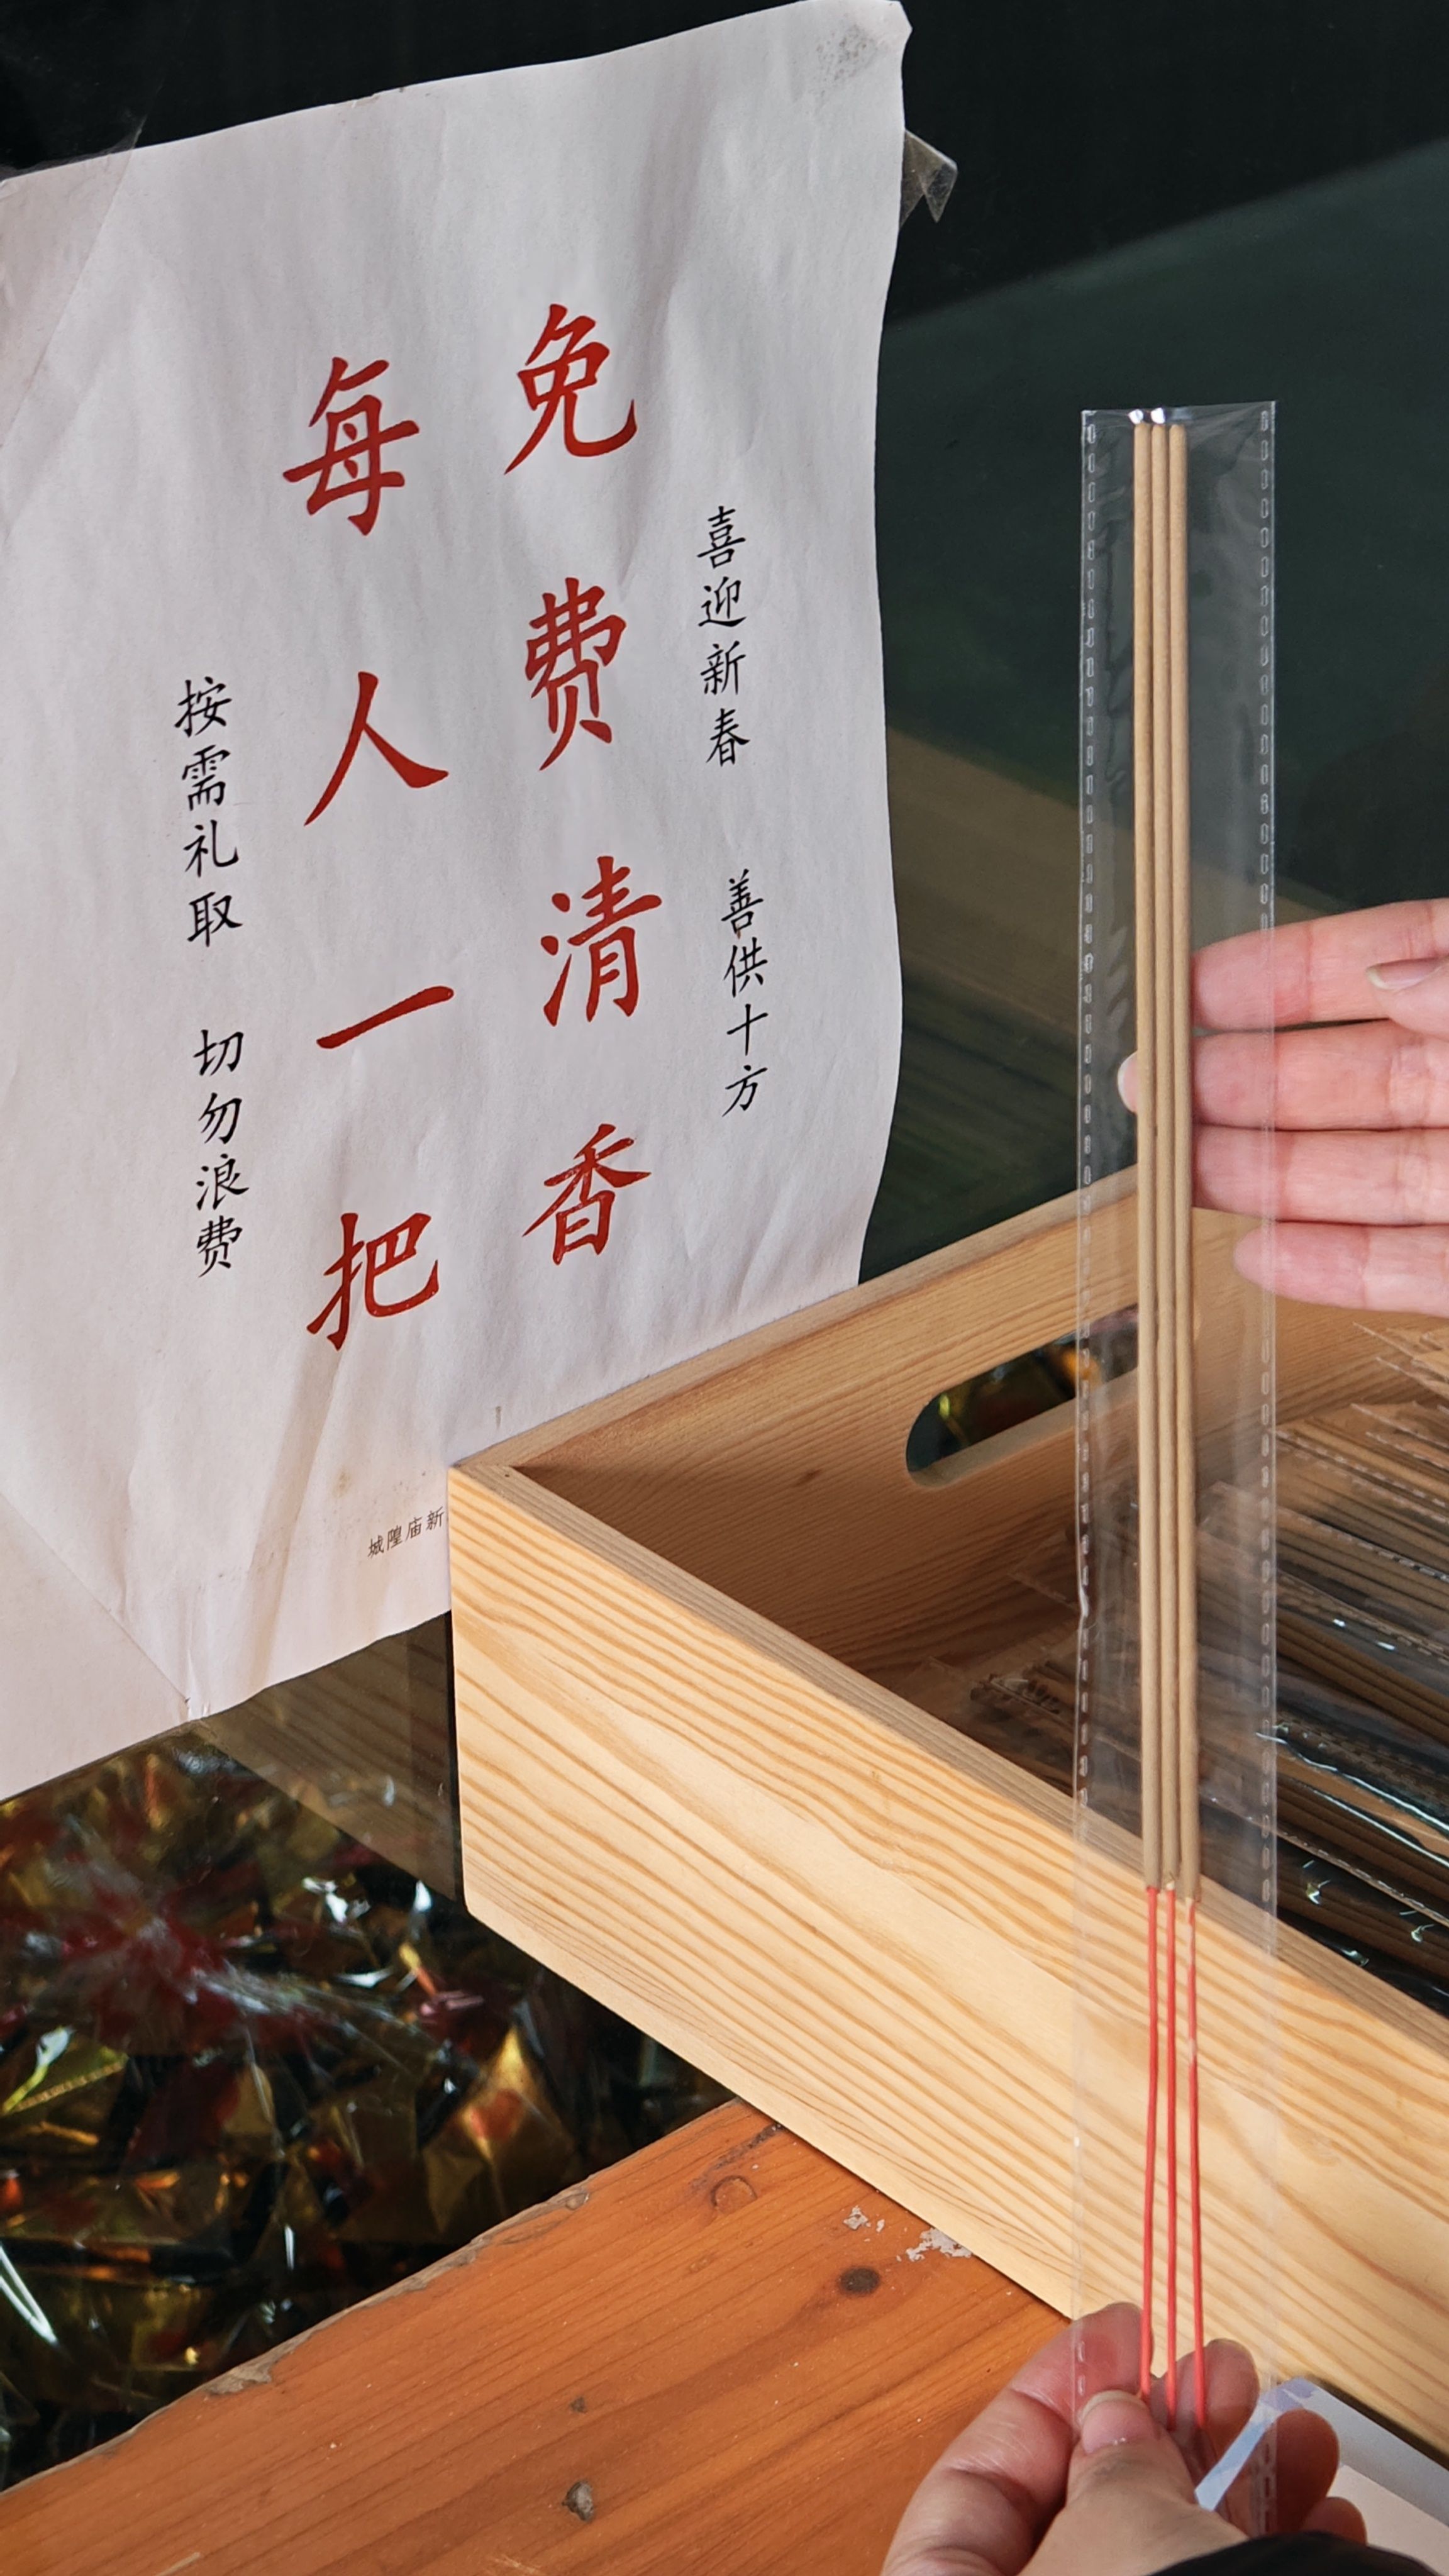 喜迎新春 善供十方
免费清香
每人一把
按需礼取 切勿浪费
城隍庙新